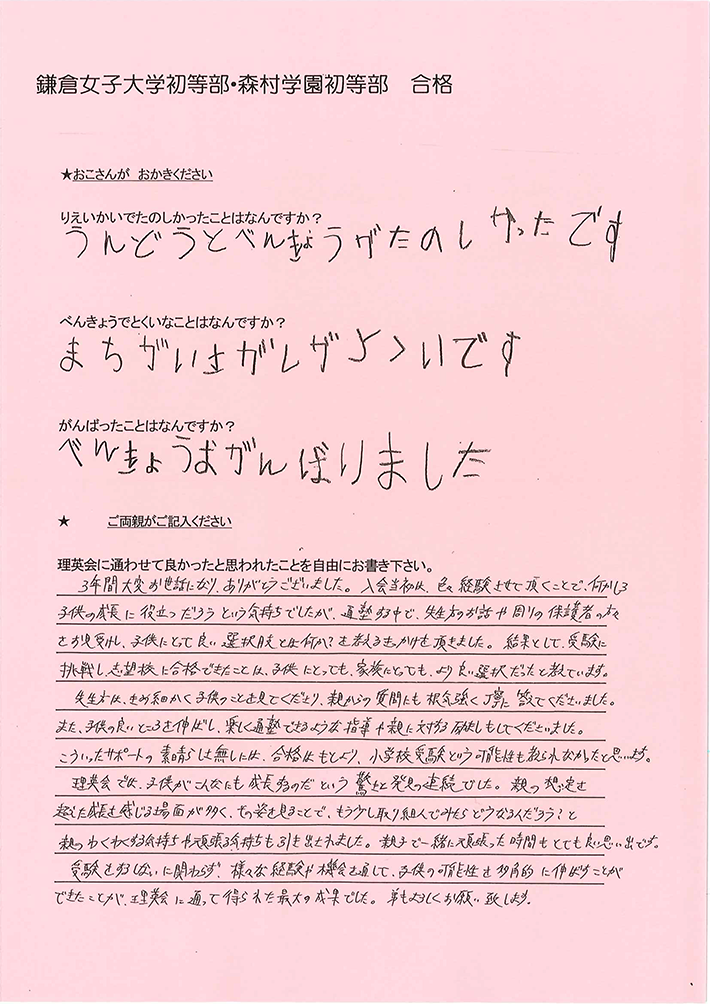 鎌倉女子大学初等部・森村学園初等部　合格
★おこさんが　おかきください
りえいかいでたのしかったことはなんですか？
うんどうとべんきょうがたのしかったです
べんきょうでとくいなことはなんですか？
まちがいさがしがとくいです
がんばったことはなんですか？
べんきょうおがんばりました
★　ご両親がご記入ください
理英会に通わせて良かったと思われたことを自由にお書き下さい。
3年間大変お世話になり、ありがとうございました。入会当初は、色々経験させて頂くことで、何かしら
子供の成長に役立つだろうという気持ちでしたが、通塾する中で、先生方のお話や周りの保護者の方々
をお見受けし、子供にとって良い選択肢とは何か？を考えるきっかけを頂きました。結果として、受験に
挑戦し、志望校に合格できたことは、子供にとっても、家族にとっても、より良い選択だったと考えています。
先生方は、きめ細かく子供のことを見てくださり、親からの質問にも根気強く丁寧に答えてくださいました。
また、子供の良いところを伸ばし、楽しく通塾できるような指導や親に対する励ましもしてくださいました。
こういったサポートの素晴らしさ無しには、合格はもとより、小学校受験という可能性も考えられなかったと思います。
理英会では、子供がこんなにも成長するのだという驚きと発見の連続でした。親の想定を
超えた成長を感じる場面が多く、その姿を見ることで、もう少し取り組んでみたらどうなるんだろう？と
親のわくわくする気持ちや頑張る気持ちも引き出されました。親子で一緒に頑張った時間もとても良い思い出です。
受験をするしないに関わらず、様々な経験や機会を通して、子供の可能性を多角的に伸ばすことが
できたことが、理英会に通って得られた最大の成果でした。弟もよろしくお願い致します。